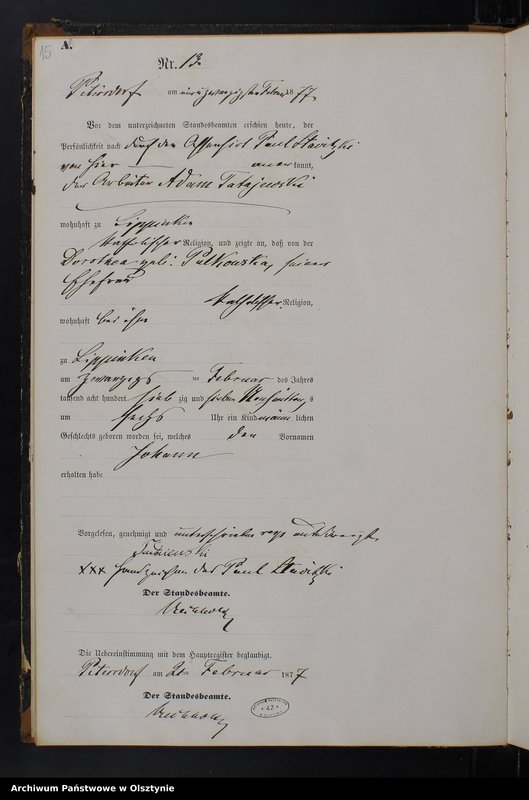 15
A.
Nr. 13.
Petersdorf am ein zwanzigsten Februar 1877.
Vor dem unterzeichneten Standesbeamten erschien heute, der
Persönlichkeit nach durch den Paul
von hier anerkannt,
der Arbeiter Adam
wohnhaft zu Lippinken
katholischer Religion, und zeigte an, daß von der
Dorothea geb. Pulkowska, seiner
Ehefrau
katholischer Religion,
wohnhaft bei ihm
zu Lippinken
am zwanzigs ten Februar des Jahres
tausend acht hundert sieb zig und sieben Nachmittags
um sechs Uhr ein Kind männlichen
Geschlechts geboren worden sei, welches den Vornamen
Johann
erhalten habe
Vorgelesen, genehmigt und
xxx Handzeichen des Paul
Der Standesbeamte.
Die Uebereinstimmung mit dem Hauptregister beglaubigt.
Petersdorf am 21 ten Februar 1877
Der Standesbeamte.
42
Archiwum Państwowe w Olsztynie